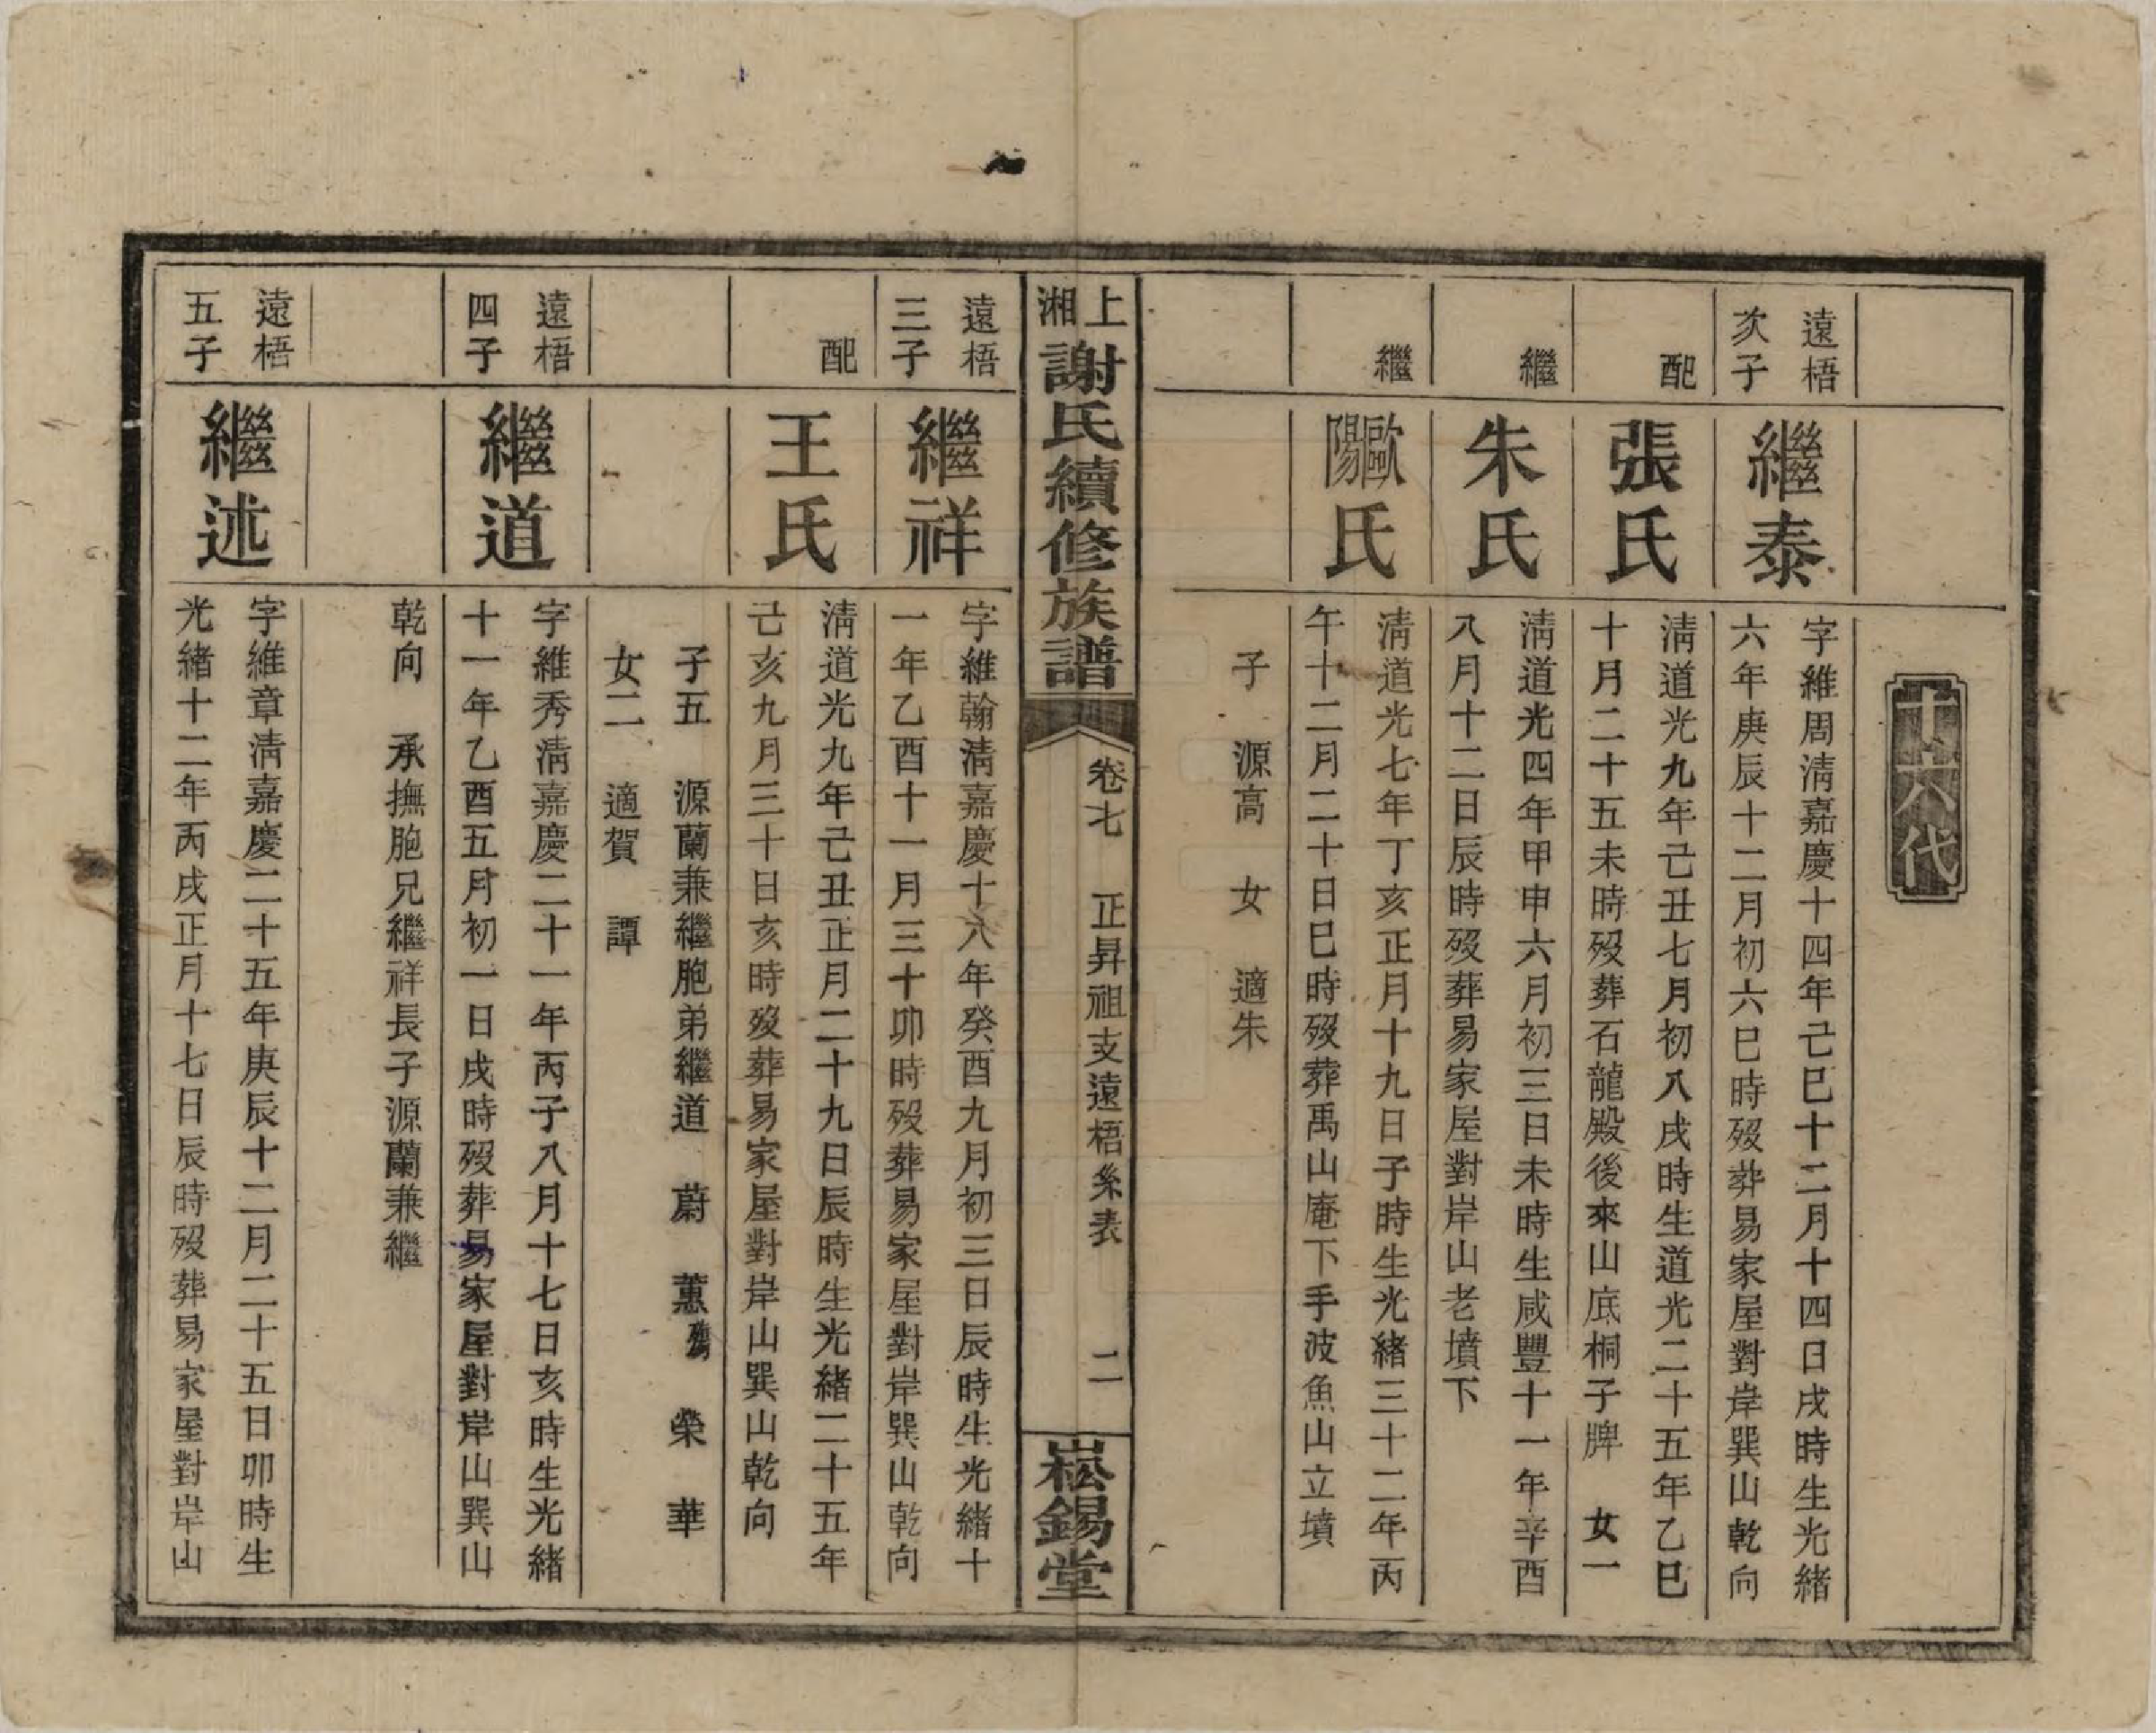 十六代
遠梧
次子
繼泰
字維周淸嘉慶十四年己巳十二月十四日戌時生光緖
六年庚辰十二月初六巳時歿葬易家屋對岸巽山乾向
配
張氏
淸道光九年己丑七月初八戌時生道光二十五年乙巳
十月二十五未時歿葬石龍殿後來山底桐子牌 女一
繼
朱氏
淸道光四年甲申六月初三日未時生咸豐十一年辛酉
八月十二日辰時歿葬易家屋對岸山老墳下
繼
歐陽氏
淸道光七年丁亥正月十九日子時生光緖三十二年丙
午十二月二十日巳時歿葬禹山庵下手波魚山立墳
子 源高 女 適朱
上湘謝氏續修族譜
卷七 正昇祖支遠梧系表 二
崧錫堂
遠梧
三子
繼祥
字維翰淸嘉慶十八年癸酉九月初三日辰時生光緖十
一年乙酉十一月三十卯時歿葬易家屋對岸巽山乾向
配
王氏
淸道光九年己丑正月二十九日辰時生光緖二十五年
己亥九月三十日亥時歿葬易家屋對岸山巽山乾向
子五 源蘭兼繼胞弟繼道 蔚 蕙殤 榮 華
女二 適賀 譚
遠梧
四子
繼道
字維秀淸嘉慶二十一年丙子八月十七日亥時生光緖
十一年乙酉五月初一日戌時歿葬易家屋對岸山巽山
乾向 承撫胞兄繼祥長子源蘭兼繼
遠梧
五子
繼述
字維章淸嘉慶二十五年庚辰十二月二十五日卯時生
光緖十二年丙戌正月十七日辰時歿葬易家屋對岸山